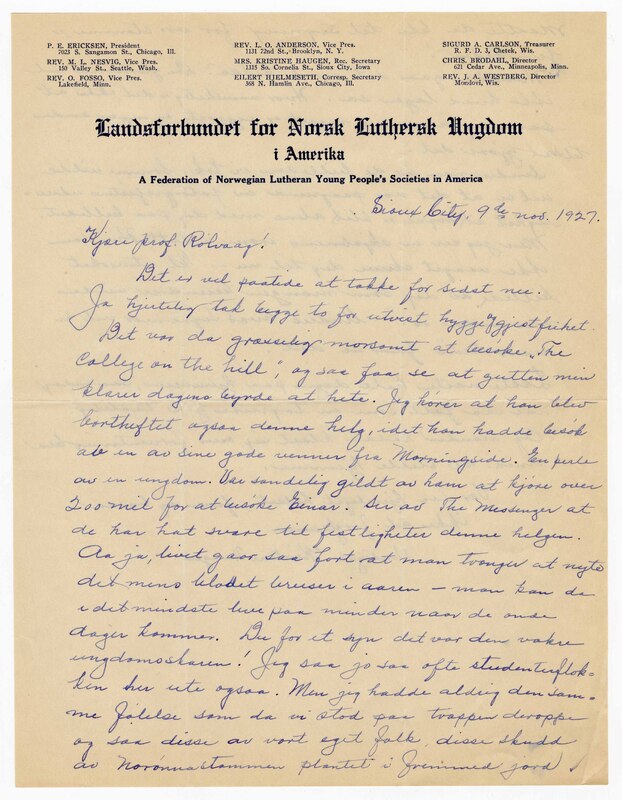 P. E. ERICKSEN, President
7023 S. Sangamon St., Chicago, Ill.
REV. M. L. NESVIG, Vice Pres.
150 Valley St., Seattle, Wash.
REV. O. FOSSO, Vice Pres.
Lakefield, Minn.
REV. L. O. ANDERSON, Vice Pres.
1131 72nd St., Brooklyn, N. Y.
MRS. KRISTINE HAUGEN, Rec. Secretary
1315 So. Cornelia St., Sioux City, Iowa
EILERT HJELMESETH, Corresp. Secretary
368 N. Hamlin Ave., Chicago, Ill.
SIGURD A. CARLSON, Treasurer
R. F. D. 3, Chetek, Wis.
CHRIS. BRODAHL, Director
621 Cedar Ave., Minneapolis, Minn.
REV. J. A. WESTBERG, Director
Mondovi, Wis.
Landsforbundet for Norsk Luthersk Ungdom
i Amerika
A Federation of Norwegian Lutheran Young People's Societies in America
Sioux City, 9de nov. 1927.
Kjære prof. Rolvaag!
Det er vel paatide at takke for sidst nu.
Ja hjertelig tak begge to for utvist hygge og gjestfrihet.
Det var da græsselig morsomt at besøke "The
College on the hill", og saa faa se at gutten min
klarer dagens byrde at hete. Jeg hører at han blev
bortheftet ogsaa denne helg, idet han hadde besøk
av en av sine gode venner fra Morningside. En perle
av en ungdom. Var sandelig gildt av ham at kjøre over
200 mil for at besøke Einar. Ser av The Messenger at
de har hat svare til festligheter denne helgen.
Aa ja, livet gaar saa fort at man tvinges at nyte
det mens blodet bruser i aaren – man kan de
i det mindste leve paa minder naar de onde
dager kommer. Du for et syn det var den vakre
ungdomsskaren! Jeg saa jo saa ofte studenterflok-
ken her ute ogsaa. Men jeg hadde aldrig den sam-
me følelse som da vi stod paa trappen deroppe
og saa disse av vort eget folk, disse skudd
av Norønnastammen plantet i fremmed jord